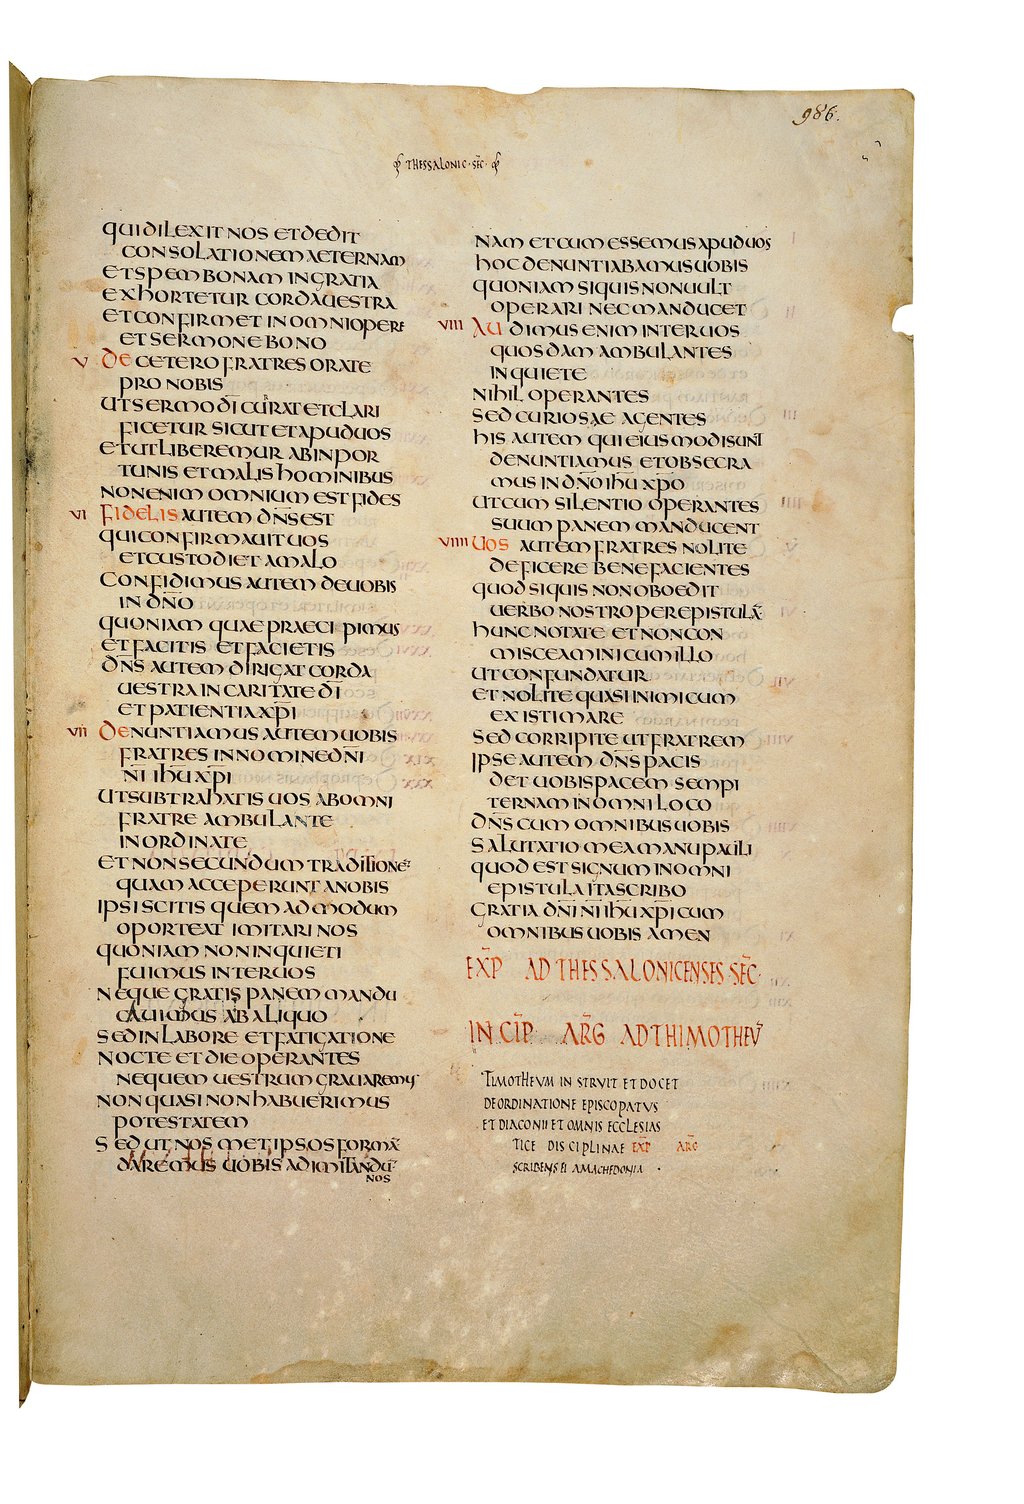 986.
THESSALONIC · SEC̄ ·
QUI DILEXIT NOS ET DEDIT
CONSOLATIONEM AETERNAM
ET SPEM BONAM IN GRATIA
EXHORTETUR CORDA UESTRA
ET CONFIRMET IN OMNI OPERE
ET SERMONE BONO
V DE CETERO FRATRES ORATE
PRO NOBIS
UT SERMO DĪ CURRAT ET CLARI
FICETUR SICUT ET APUD UOS
ET UT LIBEREMUR AB INPOR
TUNIS ET MALIS HOMINIBUS
NON ENIM OMNIUM EST FIDES
VI FIDELIS AUTEM DN̄S EST
QUI CONFIRMAUIT UOS
ET CUSTODIET A MALO
CONFIDIMUS AUTEM DE UOBIS
IN DN̄O
QUONIAM QUAE PRAECIPIMUS
ET FACITIS ET FACIETIS
DN̄S AUTEM DIRIGAT CORDA
UESTRA IN CARITATE DĪ
ET PATIENTIA XP̄I
VII DENUNTIAMUS AUTEM UOBIS
FRATRES IN NOMINE DN̄I
N̄I IHŪ XP̄I
UT SUBTRAHATIS UOS AB OMNI
FRATRE AMBULANTE
INORDINATE
ET NON SECUNDUM TRADITIONĒ
QUAM ACCEPERUNT A NOBIS
IPSI SCITIS QUEMADMODUM
OPORTEAT IMITARI NOS
QUONIAM NON INQUIETI
FUIMUS INTER UOS
NEQUE GRATIS PANEM MANDU
CAUIMUS AB ALIQUO
SED IN LABORE ET FATIGATIONE
NOCTE ET DIE OPERANTES
NE QUEM UESTRUM GRAUAREMUS
NON QUASI NON HABUERIMUS
POTESTATEM
SED UT NOSMET IPSOS FORMĀ
DAREMUS UOBIS AD IMITANDŪ
NOS
NAM ET CUM ESSEMUS APUD UOS
HOC DENUNTIABAMUS UOBIS
QUONIAM SI QUIS NON UULT
OPERARI NEC MANDUCET
VIII AUDIMUS ENIM INTER UOS
QUOSDAM AMBULANTES
INQUIETE
NIHIL OPERANTES
SED CURIOSAE AGENTES
HIS AUTEM QUI EIUSMODI SUNT
DENUNTIAMUS ET OBSECRA
MUS IN DN̄O IHŪ XP̄O
UT CUM SILENTIO OPERANTES
SUUM PANEM MANDUCENT
VIIII UOS AUTEM FRATRES NOLITE
DEFICERE BENEFACIENTES
QUOD SI QUIS NON OBOEDIT
UERBO NOSTRO PER EPISTULĀ
HUNC NOTATE ET NON CON
MISCEAMINI CUM ILLO
UT CONFUNDATUR
ET NOLITE QUASI INIMICUM
EXISTIMARE
SED CORRIPITE UT FRATREM
IPSE AUTEM DN̄S PACIS
DET UOBIS PACEM SEMPI
TERNAM IN OMNI LOCO
DN̄S CUM OMNIBUS UOBIS
SALUTATIO MEA MANU PAULI
QUOD EST SIGNUM IN OMNI
EPISTULA ITA SCRIBO
GRATIA DN̄I N̄I IHŪ XP̄I CUM
OMNIBUS UOBIS AMEN
EXP̄ AD THESSALONICENSES SEC̄·
INCIP̄· ARḠ AD THIMOTHEŪ
TIMOTHEUM INSTRUIT ET DOCET
DE ORDINATIONE EPISCOPATUS
ET DIACONII ET OMNIS ECCLESIAS
TICE DISCIPLINAE EXP̄ ARḠ
SCRIBENS EI A MACHEDONIA ·